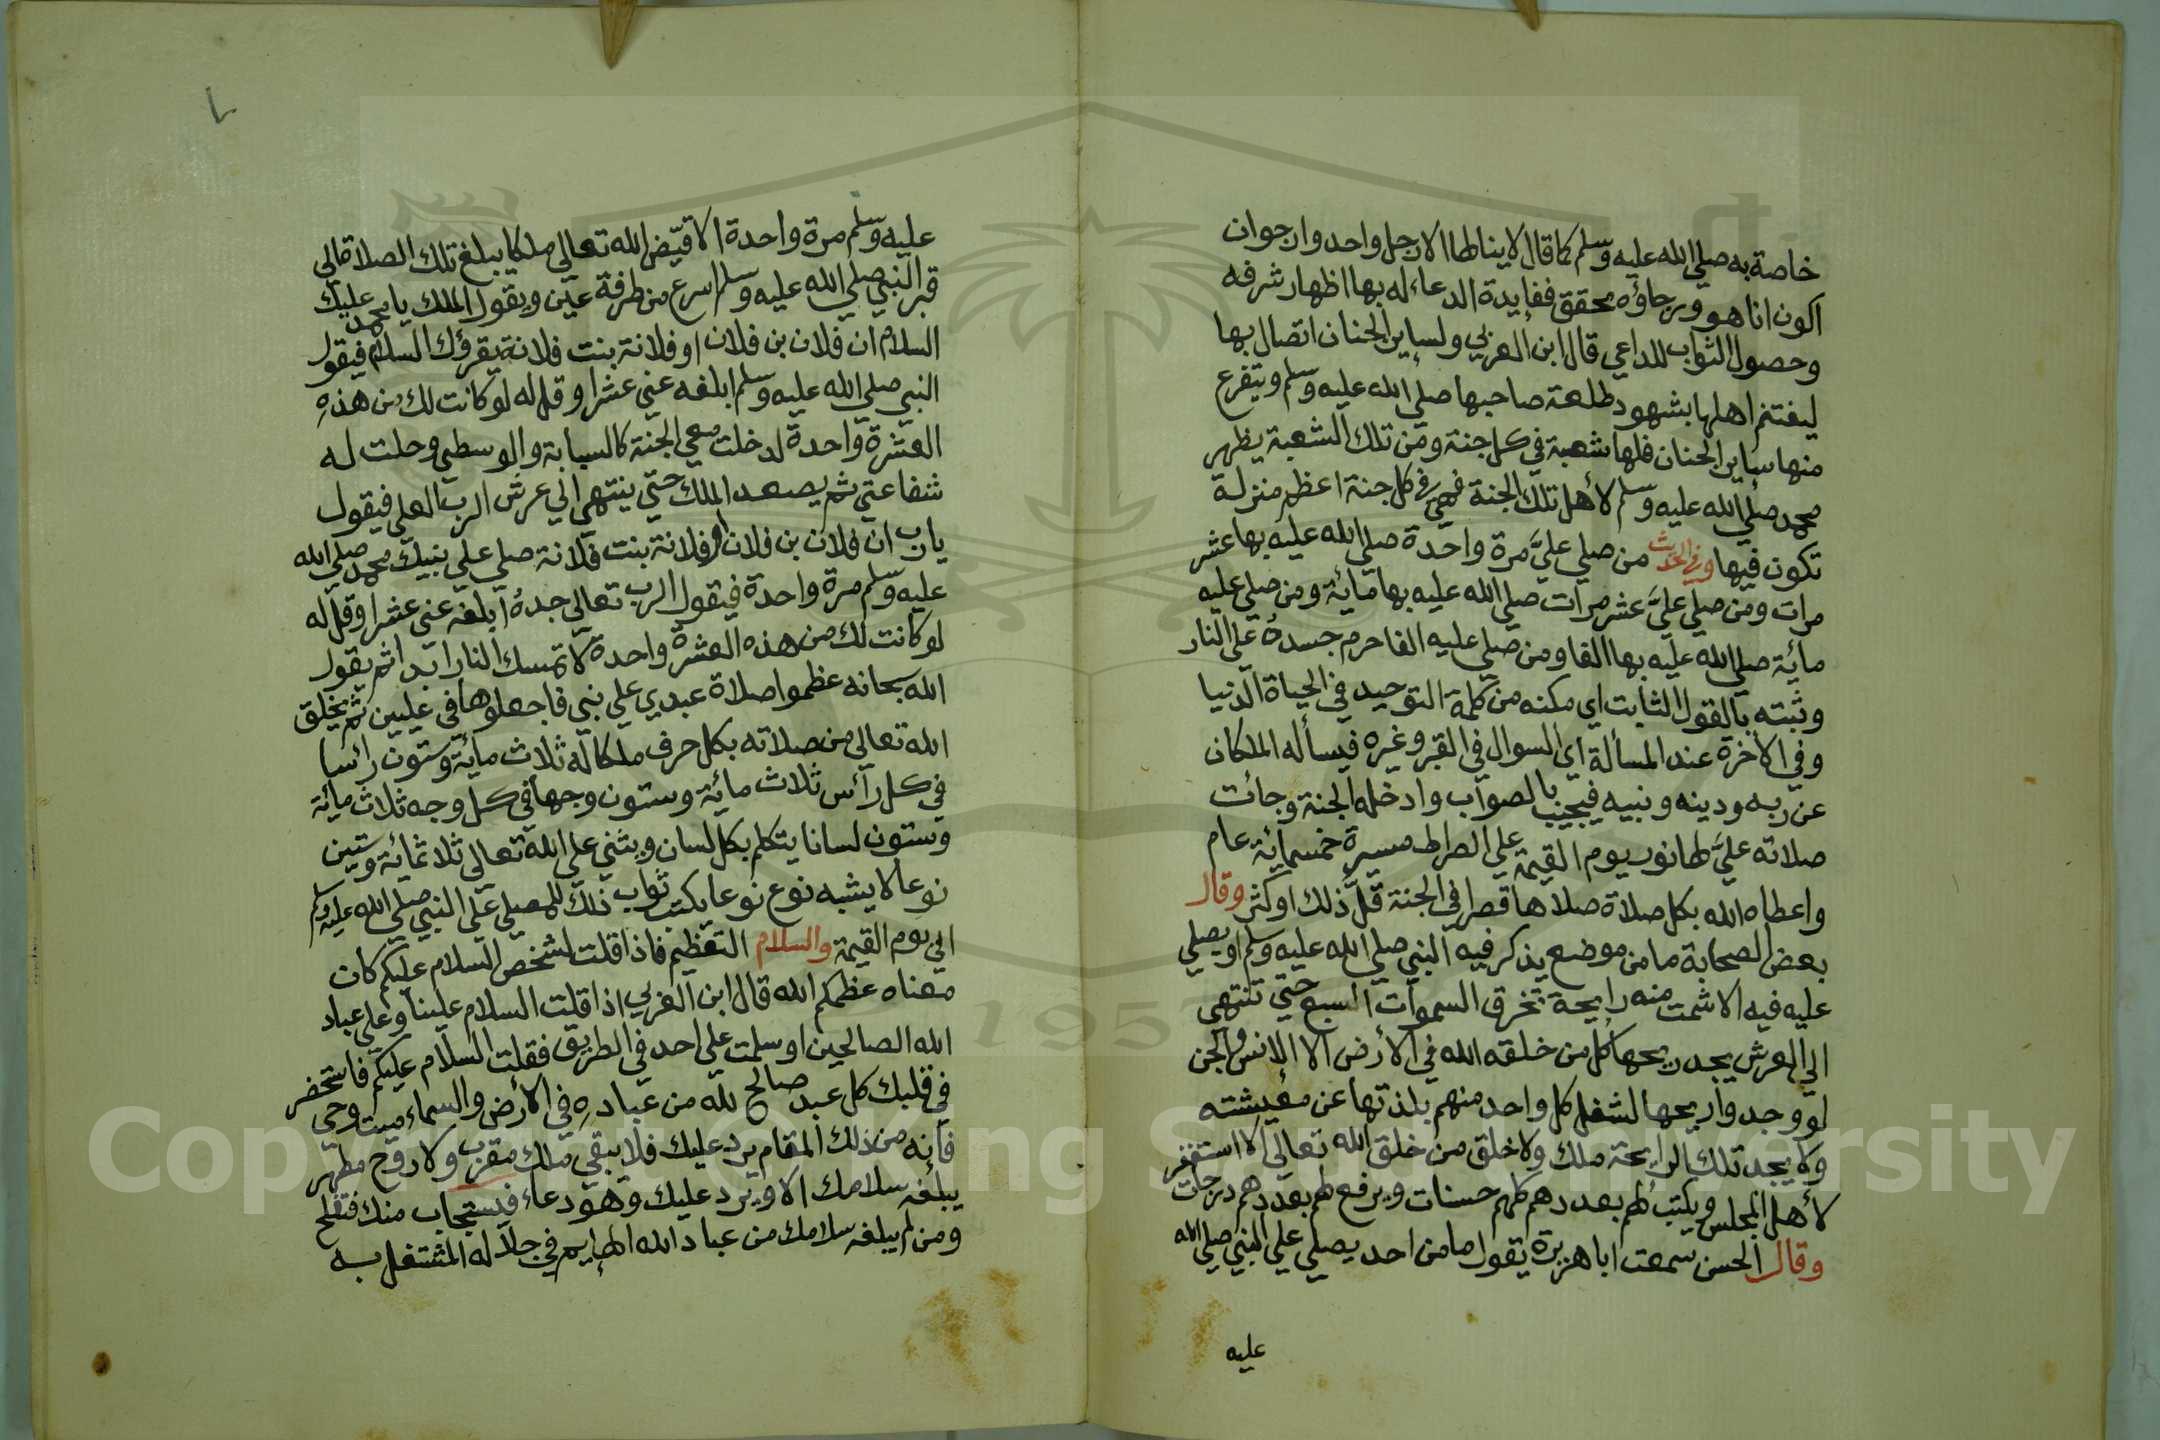 خاصة به صلي الله عليه وسلم كما قال لا ينالها الا رجل واحد وارجوان
اكون انا هو ورجاؤه محقق ففايدة الدعاء له بها اظهار شرفه
وحصول الثواب للداعي قال ابن العربي ولساير الجنان اتصال بها
ليغتنم اهلها بشهود طلعة صاحبها صلي الله عليه وسلم ويتفرع
منها ساير الجنان فلها شعبة في كل جنة ومن تلك الشعبة يظهر
محمد صلي الله عليه وسلم لأهل تلك الجنة فهي في كل جنة اعظم منزلة
تكون فيها وفي الحديث من صلي عليَّ مرة واحدة صلي الله عليه بها عشر
مرات ومن صلي عليَّ عشر مرات صلي الله عليه بها مائة ومن صلي عليه
مائة صلي الله عليه بها الفا ومن صلي عليه الفا حرم جسده علي النار
وثبته بالقول الثابت اي مكنه من كلمة التوحيد في الحياة الدنيا
وفي الاخرة عند المسألة اي السوال في القبر وغيره فيسأله الملكان
عن ربه ودينه ونبيه فيجيب بالصواب وادخله الجنة وجائت
صلاته عليَّ لها نور يوم القيمة علي الصراط مسيرة خمسمائة عام
واعطاه الله بكل صلاة صلاها قصرا في الجنة قلَّ ذلك او كثر وقال
بعض الصحابة ما من موضع يذكر فيه النبي صلي الله عليه وسلم او يصلي
عليه فيه الا شمت منه رايحة تخرق السموات السبع حتي تنتهي
الي العرش يجد ريحها كل من خلقه الله في الأرض الا الانس والجن
لو وجدوا ريحها لشغل كل واحد منهم بلذتها عن معيشته
ولا يجد تلك الرايحة ملك ولا خلق من خلق الله تعالي الا استغفر
لأهل المجلس ويكتب لهم بعددهم كلهم حسنات ويرفع لهم بعددهم درجات
وقال الحسن سمعت ابا هريرة يقول ما من احد يصلي علي النبي صلي الله
عليه
عليه وسلم مرة واحدة الا قيّض الله تعالي ملكا يبلغ تلك الصلاة الي
قبر النبي صلي الله عليه وسلم اسرع من طرفة عين ويقول الملك يا محمد عليك
السلام ان فلان بن فلان او فلانة بنت فلانة يقرؤك السلام فيقول
النبي صلي الله عليه وسلم ابلغه عني عشرا وقل له لو كانت لك من هذه
العشرة واحدة لدخلت معي الجنة كالسبابة والوسطي وحلت له
شفاعتي ثم يصعد الملك حتي ينتهي الي عرش الرب العلي فيقول
يارب ان فلان بن فلان او فلانة بنت فلانة صلي علي نبيك محمد صلي الله
عليه وسلم مرة واحدة فيقول الرب تعالي جده ابلغه عني عشرا وقل له
لو كانت لك من هذه العشرة واحدة لا تمسك النار ابدا ثم يقول
الله سبحانه عظموا صلاة عبدي علي نبي فاجعلوها في عليين ثم يخلق
الله تعالي من صلاته بكل حرف ملكا له ثلاث مائة وستون رأسا
في كل رأس ثلاث مائة وستون وجها في كل وجه ثلاث مائة
وستون لسانا يتكلم بكل لسان ويثني علي الله تعالي ثلاثمائة وستين
نوعا لا يشبه نوع نوعا يكتب ثواب ذلك للمصلي علي النبي صلي الله عليه وسلم
الي يوم القيمة والسلام التعظيم فاذا قلت لشخص السلام عليكم كان
معناه عظمكم الله قال ابن العربي اذا قلت السلام علينا وعلي عباد
الله الصالحين او سلمت علي احد في الطريق فقلت السلام عليكم فاستحضر
في قلبك كل عبد صالح لله من عباده في الأرض والسماء ميت وحي
فانه من ذلك المقام يرد عليك فلا يبقي ملك مقرب ولا روح مطهر
يبلغه سلامك الا ويرد عليك وهو دعاء فيستجاب منك فتفلح
ومن لم يبلغه سلامك من عباد الله الهايم في جلاله المشتغل به
Copyright © King Saud University
1957